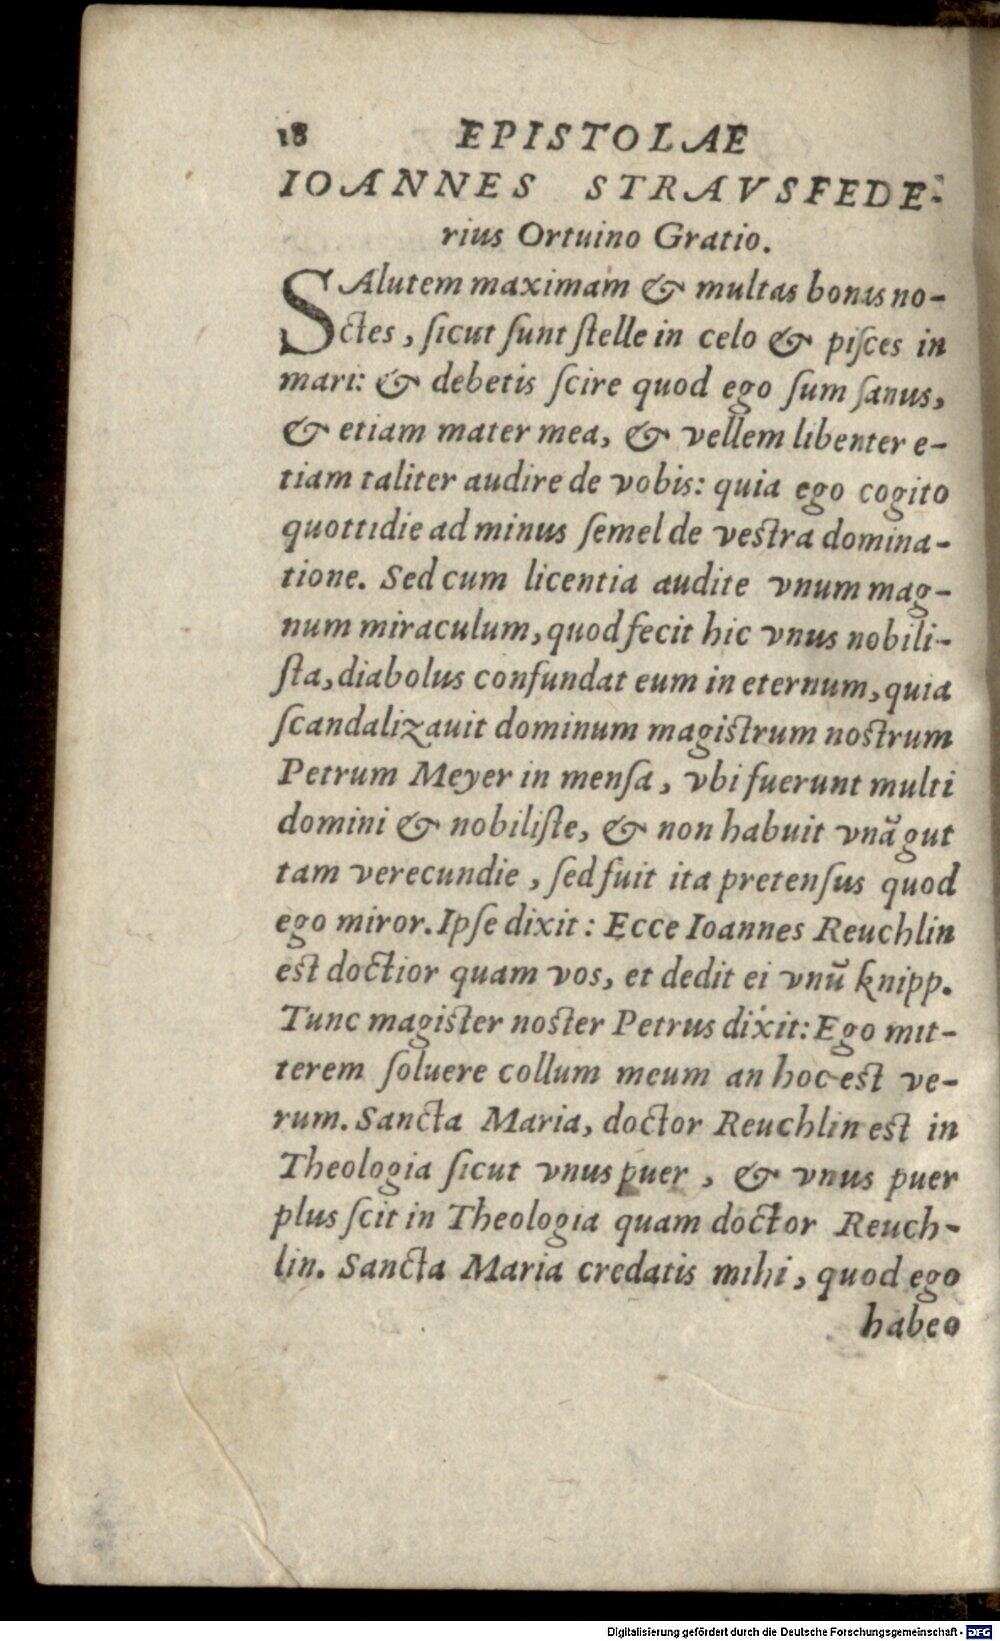 18 EPISTOLAE
IOANNES STRAVSFEDE-
rius Ortuino Gratio.
SAlutem maximam & multas bonas no-
ctes, ſicut ſunt ſtelle in celo & piſces in
mari: & debetis ſcire quod ego ſum ſanus,
& etiam mater mea, & vellem libenter e-
tiam taliter audire de vobis: quia ego cogito
quottidie ad minus ſemel de veſtra domina-
tione. Sed cum licentia audite vnum mag-
num miraculum, quod fecit hic vnus nobili-
ſta, diabolus confundat eum in eternum, quia
ſcandalizauit dominum magiſtrum noſtrum
Petrum Meyer in menſa, vbi fuerunt multi
domini & nobiliſte, & non habuit vnã gut
tam verecundie, ſed fuit ita pretenſus quod
ego miror. Ipſe dixit: Ecce Ioannes Reuchlin
eſt doctior quam vos, et dedit ei vnũ knipp.
Tunc magiſter noſter Petrus dixit: Ego mit-
terem ſoluere collum meum an hoc eſt ve-
rum. Sancta Maria, doctor Reuchlin eſt in
Theologia ſicut vnus puer, & vnus puer
plus ſcit in Theologia quam doctor Reuch-
lin. Sancta Maria credatis mihi, quod ego
habeo
Digitalisierung gefördert durch die Deutsche Forschungsgemeinschaft - DFG